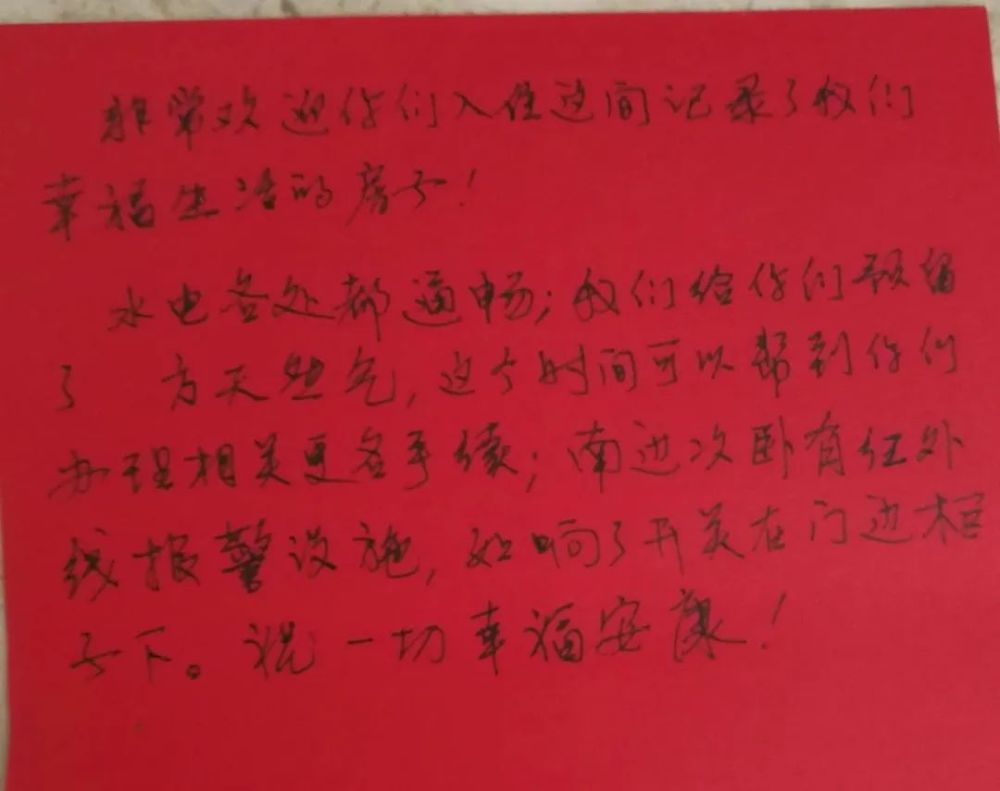 非常欢迎你们入住这间记录了我们
幸福生活的房子！
水电各处都通畅；我们给你们预留
了 方天然气，这个时间可以帮到你们
办理相关更名手续；南边次卧有红外
线报警设施，如响了开关在门边柜
子下。祝一切幸福安康！